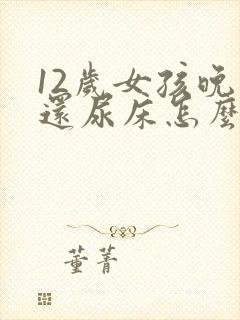 12歲女孩晚
還尿床怎麼
董菁